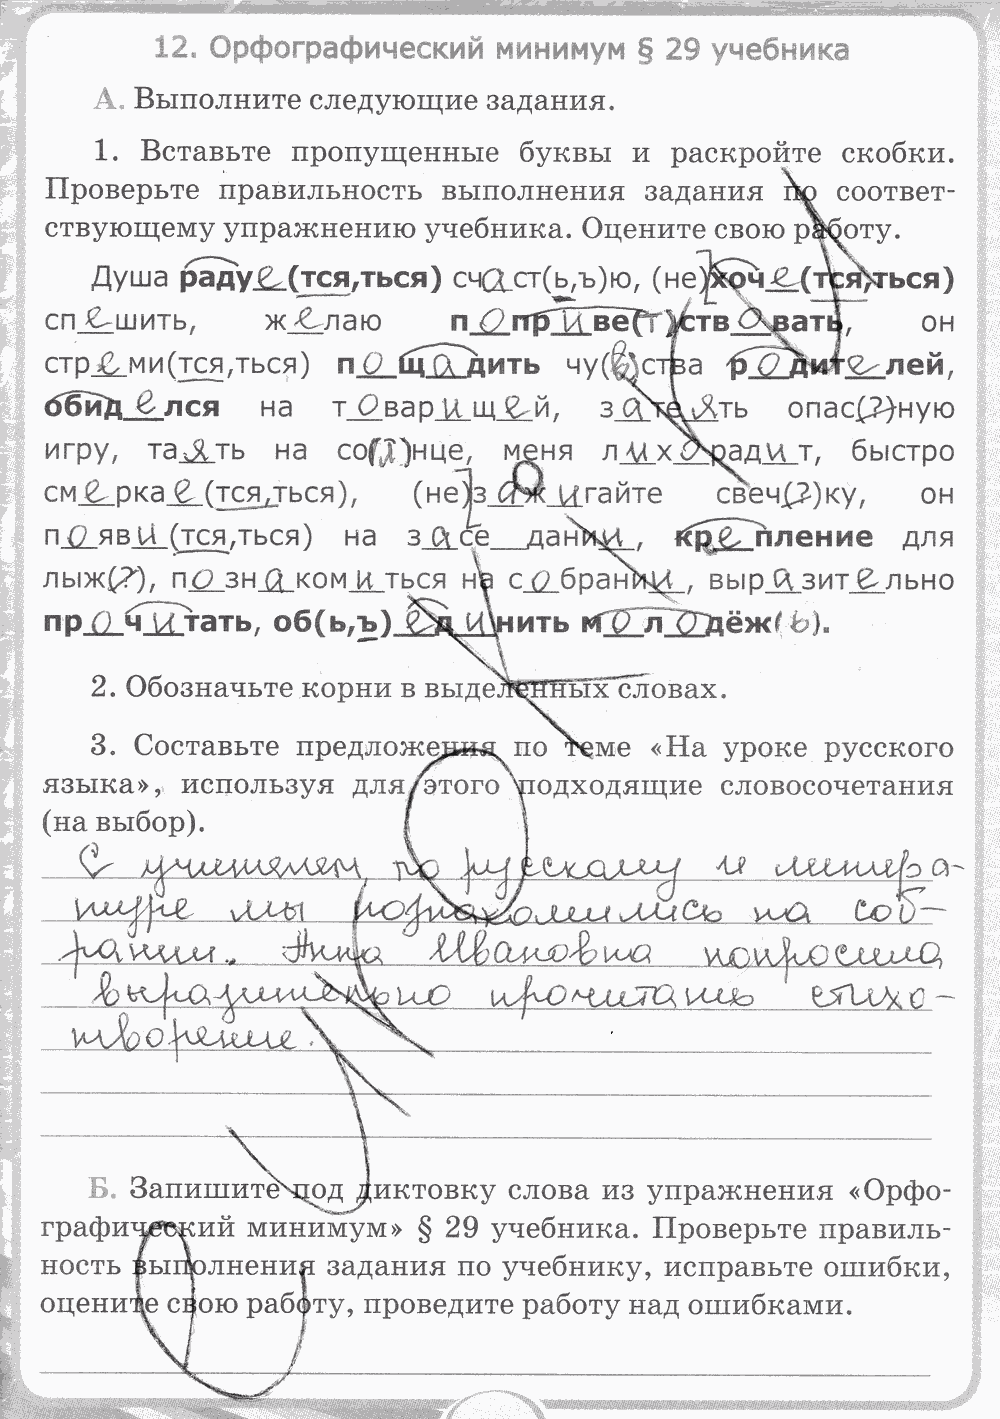 12. Орфографический минимум § 29 учебника
А. Выполните следующие задания.
1. Вставьте пропущенные буквы и раскройте скобки.
Проверьте правильность выполнения задания по соответ-
ствующему упражнению учебника. Оцените свою работу.
Душа радуе(тся,ться) счаст(ь,ъ)ю, (не)хоче(тся,ться)
спешить, желаю поприве(т)ствовать, он
стреми(тся,ться) пощадить чу(в)ства родителей,
обиделся на товарищей, затеять опас(?)ную
игру, таять на со(л)нце, меня лихорадит, быстро
смеркае(тся,ться), (не)зажигайте свеч(?)ку, он
появи(тся,ться) на засе__дании, крепление для
лыж(?), познакомиться на собрании, выразительно
прочитать, об(ь,ъ)единить молодёж(ь).
2. Обозначьте корни в выделенных словах.
3. Составьте предложения по теме «На уроке русского
языка», используя для этого подходящие словосочетания
(на выбор).
С учителем по русскому и литера-
туре мы познакомились на соб-
рании. Анна Ивановна попросила
выразительно прочитать стихо-
творение.
Б. Запишите под диктовку слова из упражнения «Орфо-
графический минимум» § 29 учебника. Проверьте правиль-
ность выполнения задания по учебнику, исправьте ошибки,
оцените свою работу, проведите работу над ошибками.